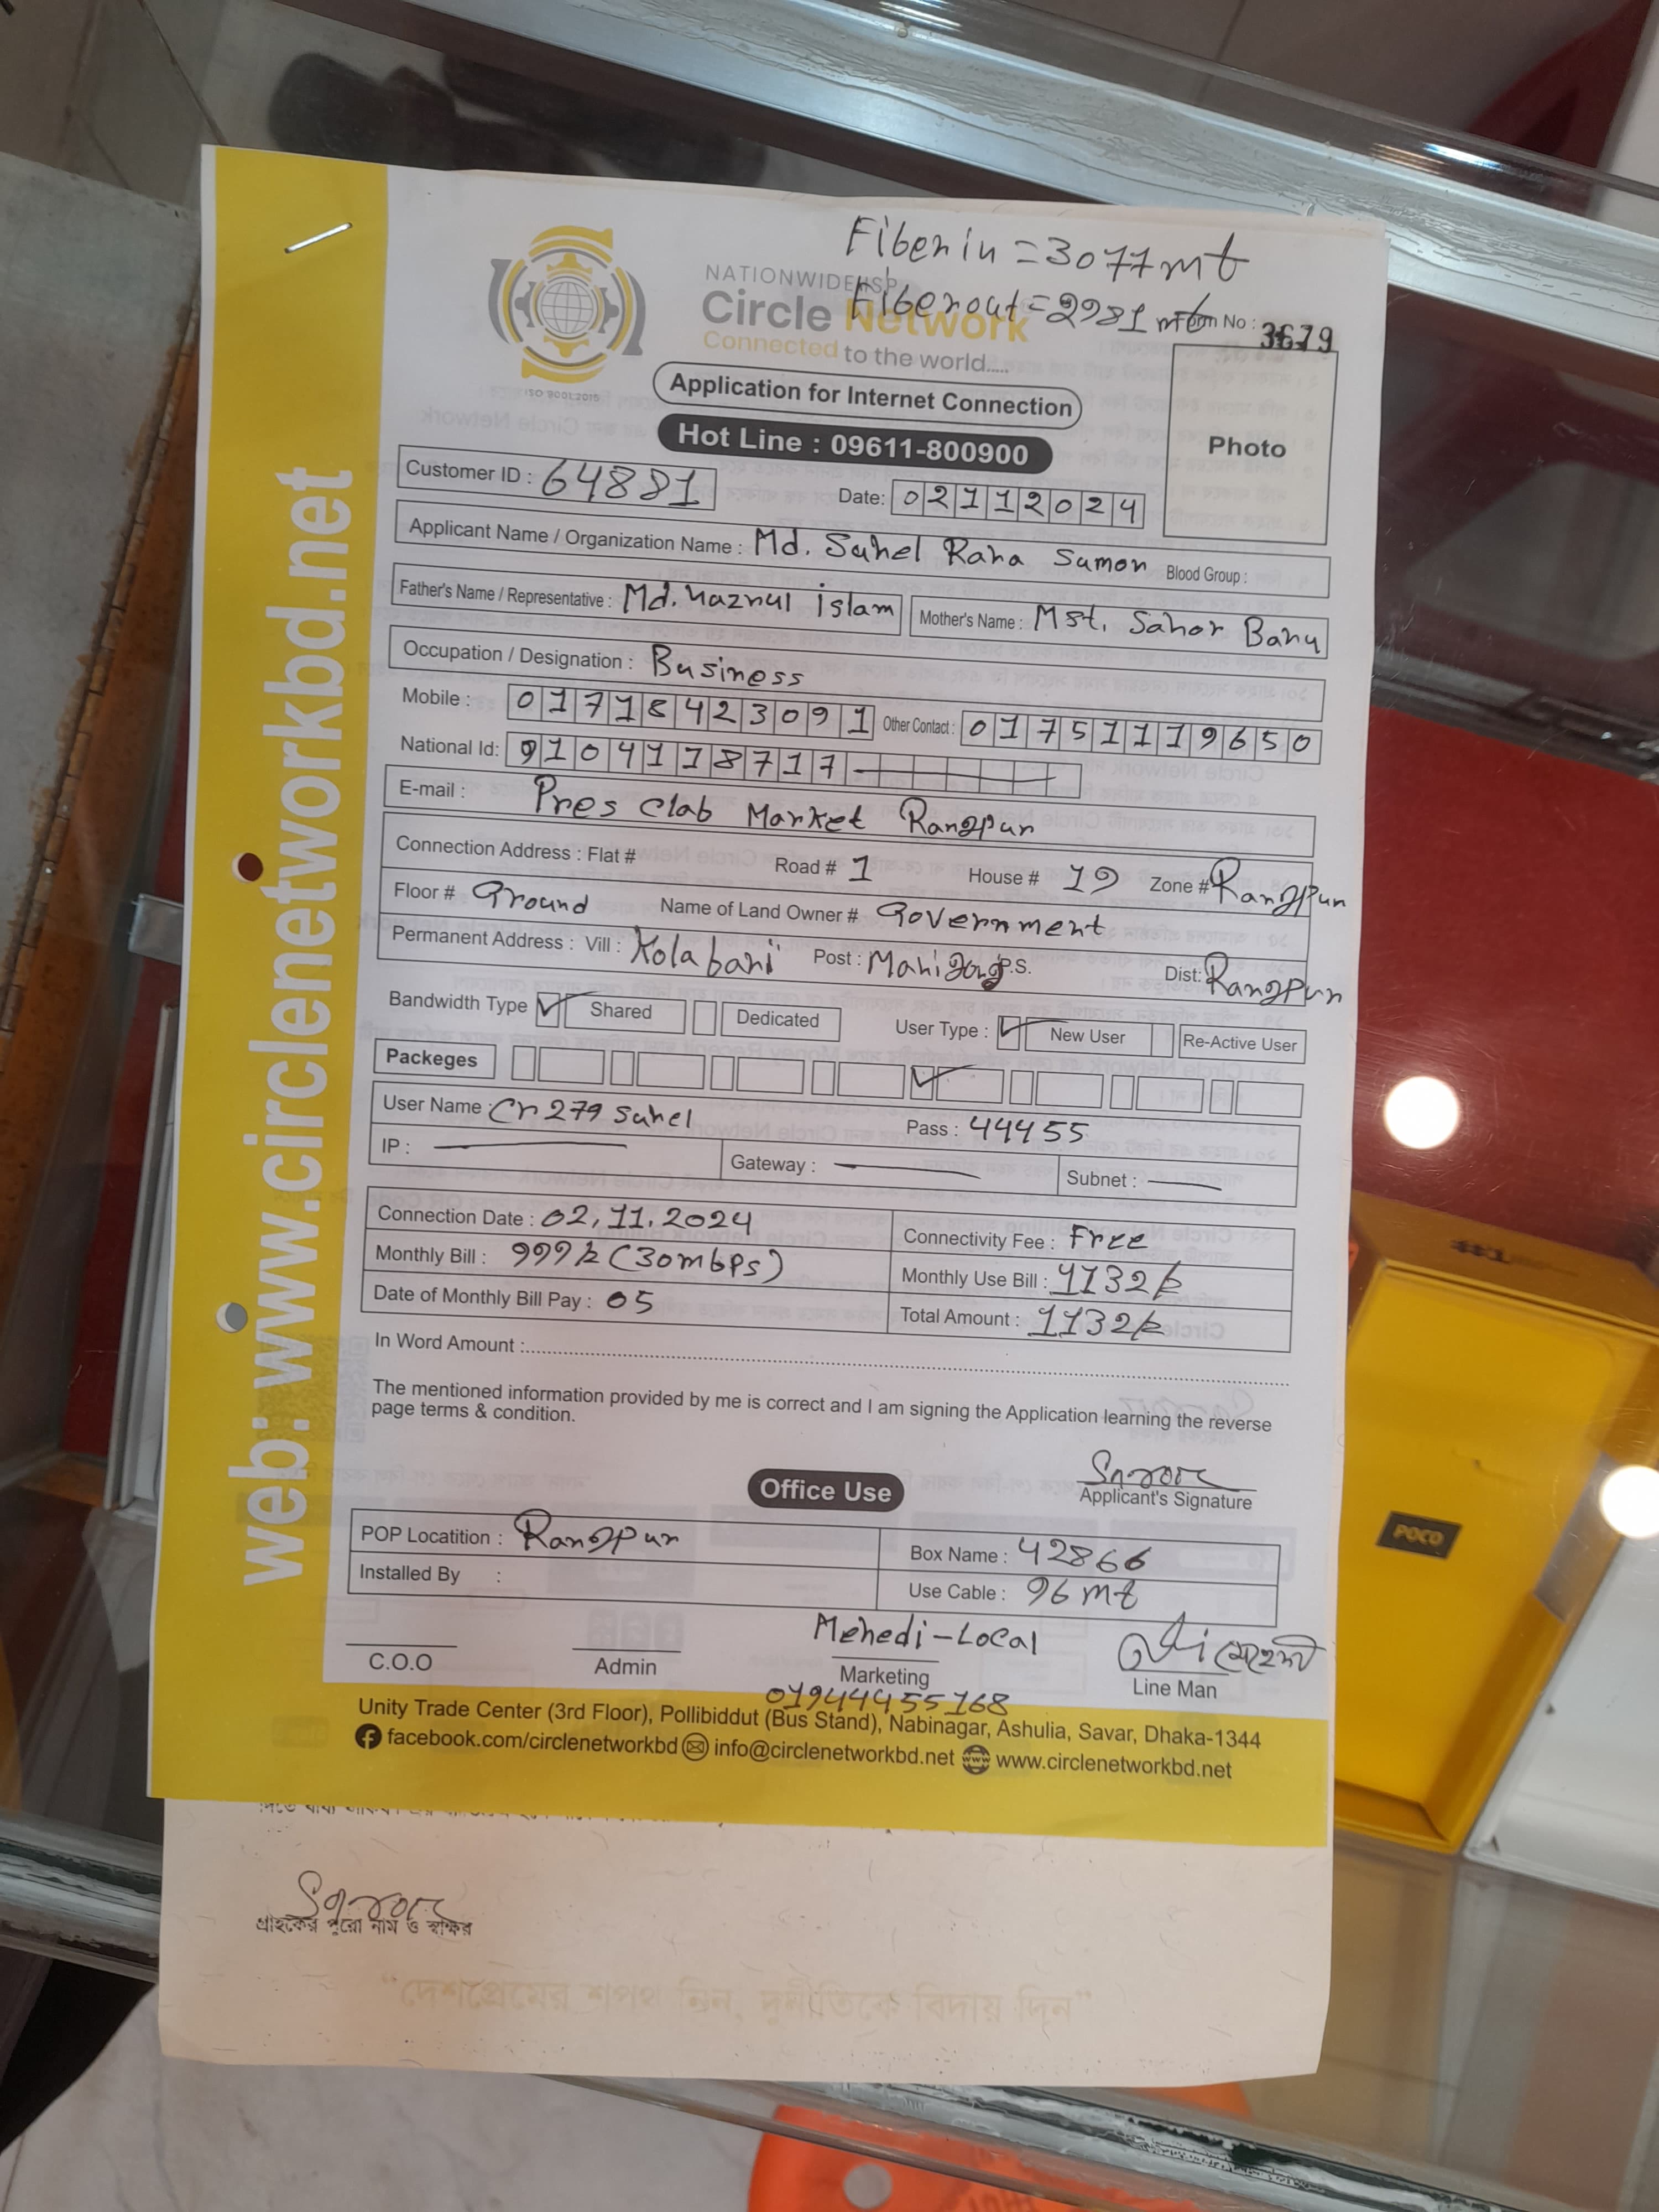 Fiber in = 3077 mt
NATIONWIDE ISP
Fiber out = 2981 mt
Circle Network
Form No : 3679
Connected to the world.....
ISO 9001:2015
Application for Internet Connection
Photo
Hot Line : 09611-800900
Customer ID : 64881 Date: 02112024
Applicant Name / Organization Name : Md. Suhel Rana Sumon Blood Group :
Father's Name / Representative : Md. Naznul islam Mother's Name : Mst. Sahor Banu
Occupation / Designation : Business
Mobile : 01718423091 Other Contact : 01751119650
National Id: 9104118717
E-mail : Pres Clab Market Rangpur
Connection Address : Flat # Road # 1 House # 19 Zone # Rangpur
Floor # Ground Name of Land Owner # Government
Permanent Address : Vill : Kolabari Post : Mahigonj P.S. Dist: Rangpur
Bandwidth Type Shared Dedicated User Type : New User Re-Active User
Packeges
User Name : Cn279 Suhel Pass : 44455
IP : Gateway : Subnet :
Connection Date : 02.11.2024 Connectivity Fee : Free
Monthly Bill : 999/= (30mbps) Monthly Use Bill : 1132/=
Date of Monthly Bill Pay : 05 Total Amount : 1132/=
In Word Amount :
The mentioned information provided by me is correct and I am signing the Application learning the reverse
page terms & condition.
Applicant's Signature
Office Use
POP Locatition : Rangpur Box Name : 42866
Installed By : Use Cable : 96 mt
Mehedi-Local
C.O.O Admin Marketing Line Man
01944455168
Unity Trade Center (3rd Floor), Pollibiddut (Bus Stand), Nabinagar, Ashulia, Savar, Dhaka-1344
facebook.com/circlenetworkbd info@circlenetworkbd.net www.circlenetworkbd.net
web: www.circlenetworkbd.net
গ্রাহকের পুরো নাম ও স্বাক্ষর
“দেশপ্রেমের শপথ নিন, দুর্নীতিকে বিদায় দিন”
POCO